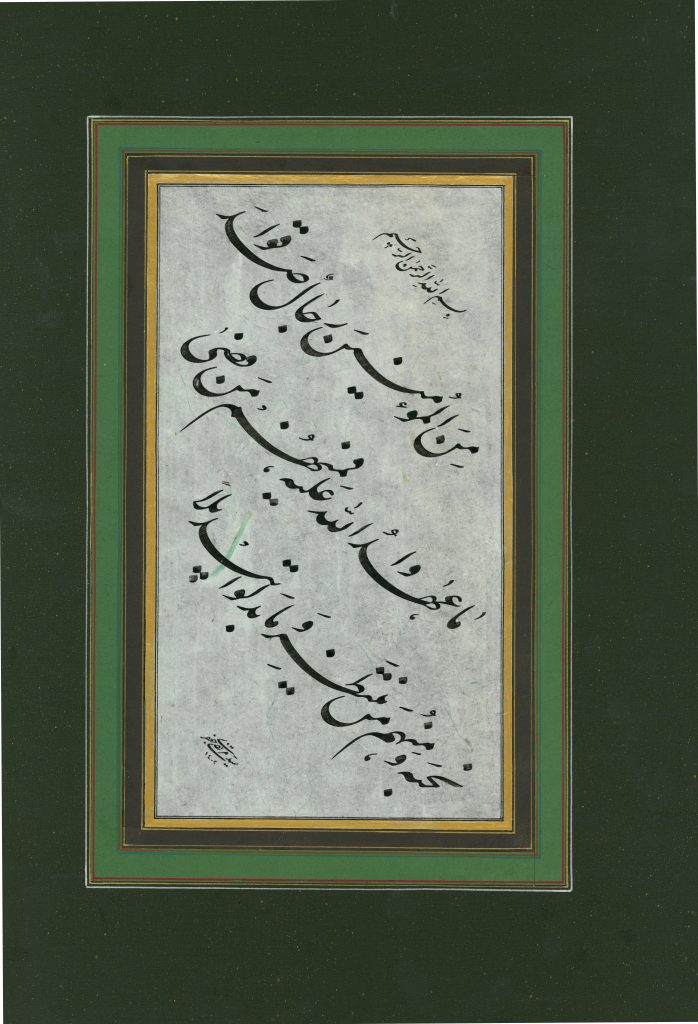 بسم الله الرحمن الرحیم
مِنَ المُؤمنینَ رجالٌ صَدَقوا
ما عهدُوا الله علیه فمنهُم مَن قضیٰ
نحبَه و منهُم مَن ینتظِر وَ ما بدلوا تبدیلاً